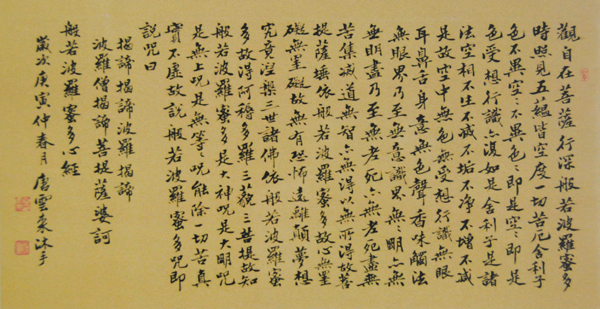 觀自在菩薩行深般若波羅蜜多
時照見五蘊皆空度一切苦厄舍利子
色不異空〻不異色〻即是空〻即是
色受想行識亦復如是舍利子是諸
法空相不生不滅不垢不淨不增不減
是故空中無色無受想行識無眼
耳鼻舌身意無色聲香味觸法
無眼界乃至無意識界無〻明亦無
無明盡乃至無老死亦無老死盡無
苦集滅道無智亦無得以無所得故菩
提薩埵依般若波羅蜜多故心無罣
礙無罣礙故無有恐怖遠離顛夢想
究竟涅槃三世諸佛依般若波羅蜜
多故得阿耨多羅三藐三菩提故知
般若波羅蜜多是大神咒是大明咒
是無上咒是無等〻咒能除一切苦真
實不虛故說般若波羅蜜多咒即
說咒曰
揭諦揭諦波羅揭諦
波羅僧揭諦菩提薩婆訶
般若波羅蜜多心經
歲次庚寅仲春月 唐雲來沐手